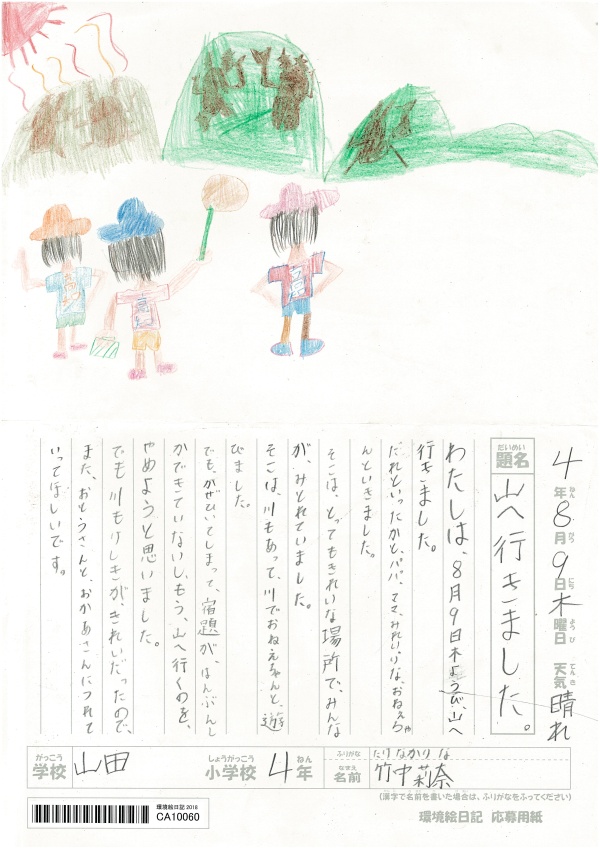 4年8月9日木曜日 天気 晴れ
ねん がつ にち ようび てんき
だいめい
題名 山へ行きました。
わたしは、8月9日木ようび、山へ
行きました。
だれといったかと、パパ、ママ、みれい、りな、おねえちゃ
んといきました。
そこは、とってもきれいな場所で、みんな
が、みとれていました。
そこは、川もあって、川でおねえちゃんと、遊
びました。
でも、かぜひいてしまって、宿題が、はんぶんし
かできていないし、もう、山へ行くのを、
やめようと思いました。
でも川もけしきが、きれいだったので、
また、おとうさんと、おかあさんにつれて
いってほしいです。
がっこう しょうがっこう ねん
学校 山田 小学校 4年
ふりがな
なまえ
名前 竹中莉奈
(漢字で名前を書いた場合は、ふりがなをふってください)
環境絵日記 2018
CA10060
環境絵日記 応募用紙
高知
高知
高